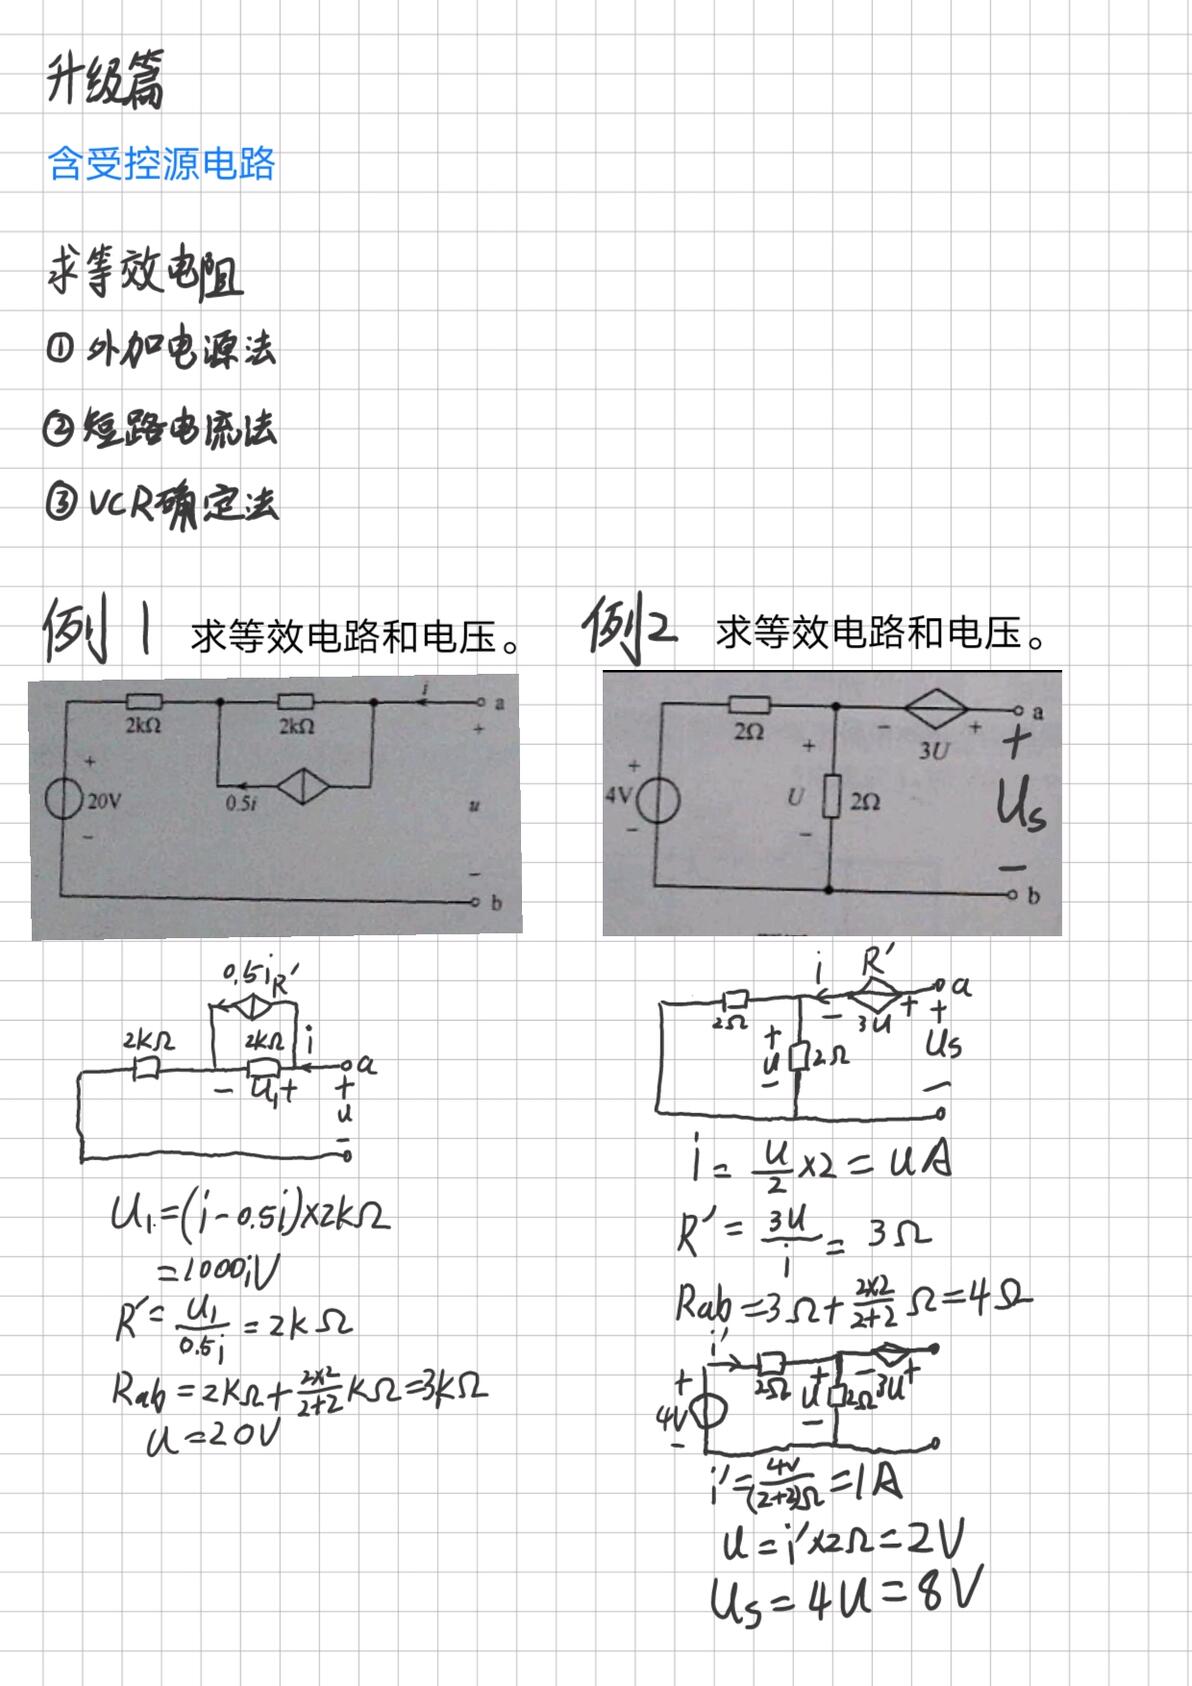 升级篇
含受控源电路
求等效电阻
①外加电源法
②短路电流法
③VCR确定法
例1 求等效电路和电压。
2kΩ 2kΩ i a
+
+ 20V - 0.5i u
-
b
0.5i R'
2kΩ 2kΩ i a
- U₁ + + u -
U₁=(i-0.5i)×2kΩ
=1000iV
R'=U₁/0.5i=2kΩ
Rab=2kΩ+2×2/2+2 kΩ=3kΩ
u=20V
例2 求等效电路和电压。
2Ω - 3U + a
+ 4V - + U - 2Ω + Us -
b
i R' a
2Ω - 3U + +
+ u - 2Ω Us
-
i=u/2×2=uA
R'=3u/i=3Ω
Rab=3Ω+2×2/2+2 Ω=4Ω
i' 2Ω - 3U +
+ 4V - + u - 2Ω
i'=4V/(2+2)Ω=1A
u=i'×2Ω=2V
Us=4u=8V